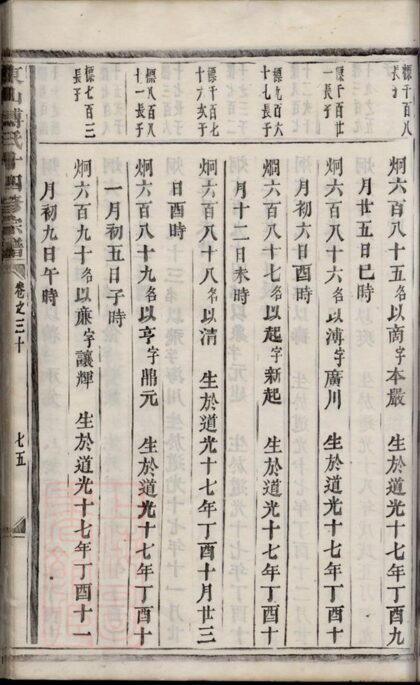 標千百八
長子
炯六百八十五名以南字本嚴　生於道光十七年丁酉九
月廿五日巳時
標千百廿
一長子
炯六百八十六名以溥字廣川　生於道光十七年丁酉十
月初六日酉時
標九百六
十七長子
炯六百八十七名以起字新起　生於道光十七年丁酉十
月十二日未時
標千百七
十六次子
炯六百八十八名以清　生於道光十七年丁酉十月廿三
日酉時
標八百八
十一長子
炯六百八十九名以亨字鼎元　生於道光十七年丁酉十
一月初五日子時
標七百三
長子
炯六百九十名以廉字讓輝　生於道光十七年丁酉十一
月初九日午時
東山傅氏十四修宗譜
卷之三十
七五